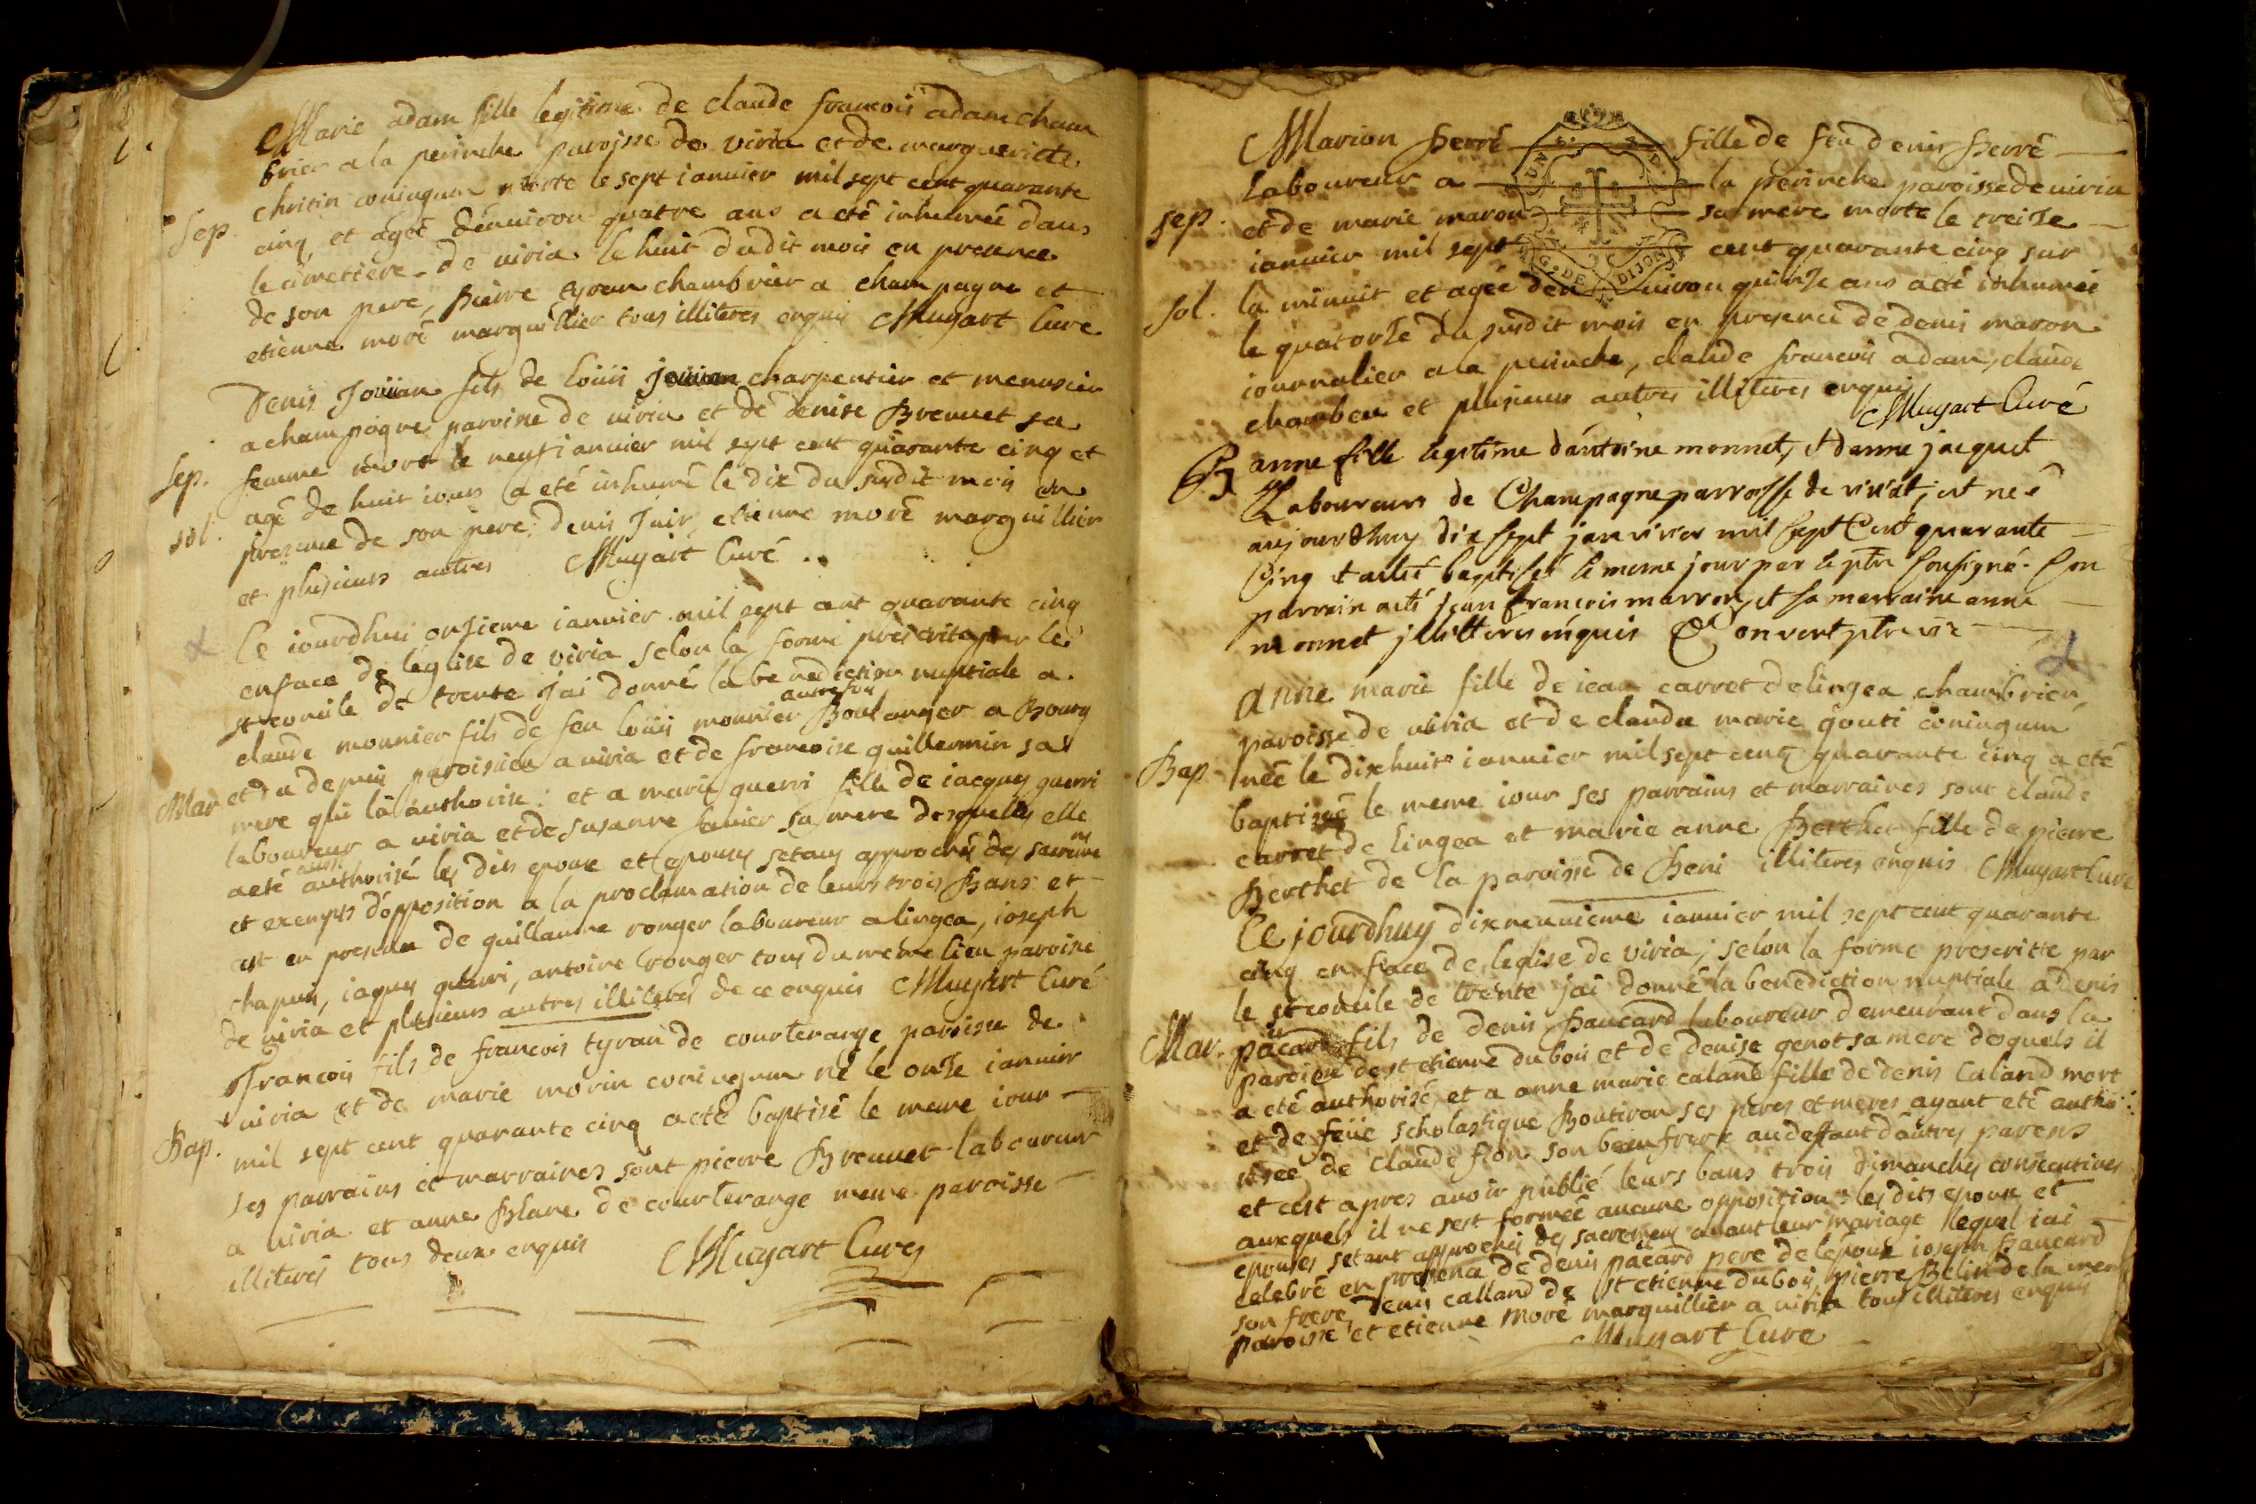 Marie adam fille legitime de claude francois adam cham
brier a la perinche paroisse de viria et de marguerite
christin coniugum morte le sept ianvier mil sept cent quarante
Sep.
cinq et agée denuiron quatre ans a eté inhumée dans
le cimetière de viria le huit dudit mois en presence
de son pere, pierre tyran chambrier a champagne et
etienne moré marguillier tous illiteres enquis Mugart Curé
Denis Jouuan fils de louis jouuan charpentier et menusier
a champagne paroisse de viria et de denise Brennet sa
Sep.
femme mort le neuf ianvier mil sept cent quarante cinq et
agé de huit iours a eté inhumé le dix du susdit mois en
sol.
presence de son pere, denis Juir, etienne moré marguillier
et plusieurs autres Mugart Curé
Ce iourdhui onzieme ianvier mil sept cent quarante cinq
en face de leglise de viria selon la forme prescrite par le
st concile de trente jai donné la benediction nuptiale a
claude mounier fils de feu louis mounier autrefois Boulanger a Bourg
Mar
et da depuis paroisien a viria et de francoise guillermin sa
mere qui la authorise: et a marie guerri fille de iacques guerri
laboureur a viria et de susanne sa mere desquels elle
a eté aussi authorisé les dits epoux et epouses setans approchés des sacremens
et exempts dopposition a la proclamation de leurs trois Bans et
cest en presence de guillaume ronger laboureur a lingea, ioseph
chapuis, iaques guerri, antoine ronger tous du meme lieu paroisse
de viria et plusieurs autres illiterés de ce enquis Mugart Curé
Francois fils de francois tyran de courterange paroisse de
viria et de marie morin coniugum né le onze ianvier
Bap.
mil sept cent quarante cinq a eté baptisé le meme iour
ses parrains et marraines sont pierre Brennet laboureur
a viria et anne Blanc de courterange meme paroisse
illiterés tous deux enquis Mugart Curés
Marion Herré fille de feu denis Herré
Laboureur a la perinche paroisse de viria
sep.
et de marie maron sa mere morte le treize
ianvier mil sept cent quarante cinq sur
sol.
la minuit et agée denuiron quinze ans a eté inhumée
le quatorze du susdit mois en presence de denis maron
iournalier a la perinche, claude francois adam, claude
chambeu et plusieurs autres illiteres enquis
Mugart Curé
B
anne fille legitime dantoine monnet, et danne jacquet
Laboureurs de Champagne parroisse de viriat, est neé
aujourdhuy dix sept janvier mil sept Cent quarante
Cinq et a esté baptisée le meme jour par le ptre sousigné. son
parrain a esté jean francois marron, et sa marraine anne
monnet illitteres enquis Convert ptre vic
Anne marie fille de iean carret de lingea chambrier,
paroisse de viria et de claudu marie gouti coniugum
Bap.
née le dixhuit ianvier mil sept cent quarante cinq a eté
baptisée le meme iour ses parrains et marraines sont claude
carret de lingea et marie anne Berthet fille de pierre
Berthet de la paroisse de Beni illiteres enquis Mugart Curé
Ce jourdhuy dixneuvieme ianvier mil sept cent quarante
cinq en face de leglise de viria, selon la forme prescritte par
le st concile de trente jai donné la benediction nuptiale a Denis
Mar.
pacard fils de denis Paucard laboureur demeurant dans la
paroisse de st etienne du bois et de denise genot sa mere desquels il
a eté authorisé, et a anne marie caland fille de denis caland mort
et de feüe scholastique Boutiron ses peres et meres ayant eté autho
risee de claude fion son beaufrere au deffaut dautres parens
et cest apres avoir publié leurs bans trois dimanches consecutives
auxquels il ne sest formée aucune opposition: les dits epoux et
epouses setant approchés des sacremens avant leur mariage lequel iai
celebré en presence de denis pacard pere de lepoux ioseph Paucard
son frere, denis calland de st etienne du bois, pierre Belin de la meme
paroisse et etienne moré marguillier a viria tous illiteres enquis
Mugart Curé